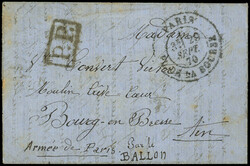 P.P.
PARIS
SEPT.
70
PL. DE LA BOURSE
Madame
Convert
Moulin
Bourg-en-Bresse
Ain
Armée de Paris Par le
BALLON